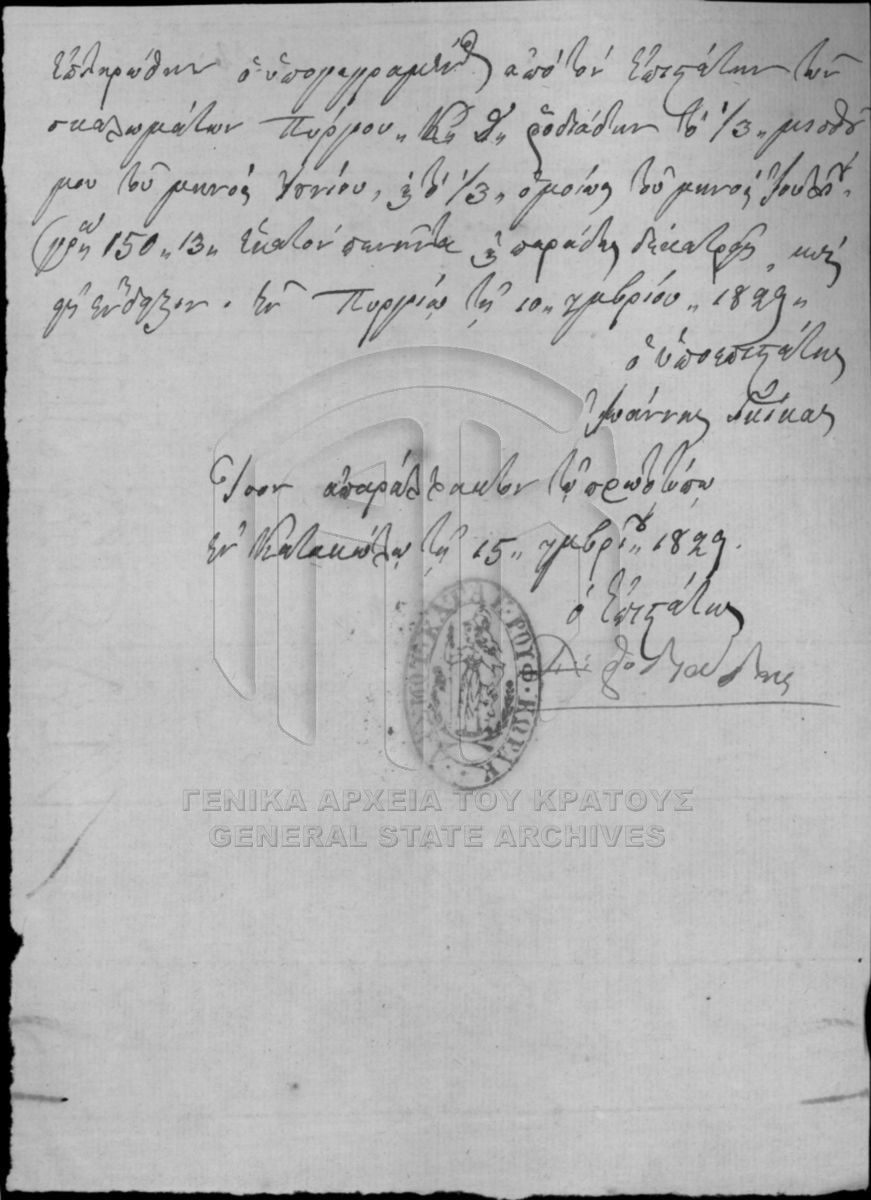 ἐπληρώθην ὁ ὑπογεγραμμένος ἀπὸ τὸν ἐπιστάτην τῶν
σκαλωμάτων Πύργου „ Κ„ Δ„ Ῥοδιάδην τὸ 1/3 „ μισθοῦ
μου τοῦ μηνὸς Ἰουνίου, ϗ τὸ 1/3 „ ὁμοίως τοῦ μηνὸς
150 „ 13 „ ἑκατὸν πενῆντα ϗ παράδες δεκατρεῖς „ καὶ
εἰς ἔνδειξιν . Ἐν Πυργίῳ τῇ 10„ 7μβρίου „ 1829„
ὁ ὑποεπιστάτης
Ἰωάννης Γκίκας
Ἴσον ἀπαράλλακτον τῷ πρωτοτύπῳ
ἐν Κατακώλῳ τῇ 15„ 7μβρίου „ 1829.
ὁ Ἐπιστάτης
ΓΕΝΙΚΑ ΑΡΧΕΙΑ ΤΟΥ ΚΡΑΤΟΥΣ
GENERAL STATE ARCHIVES